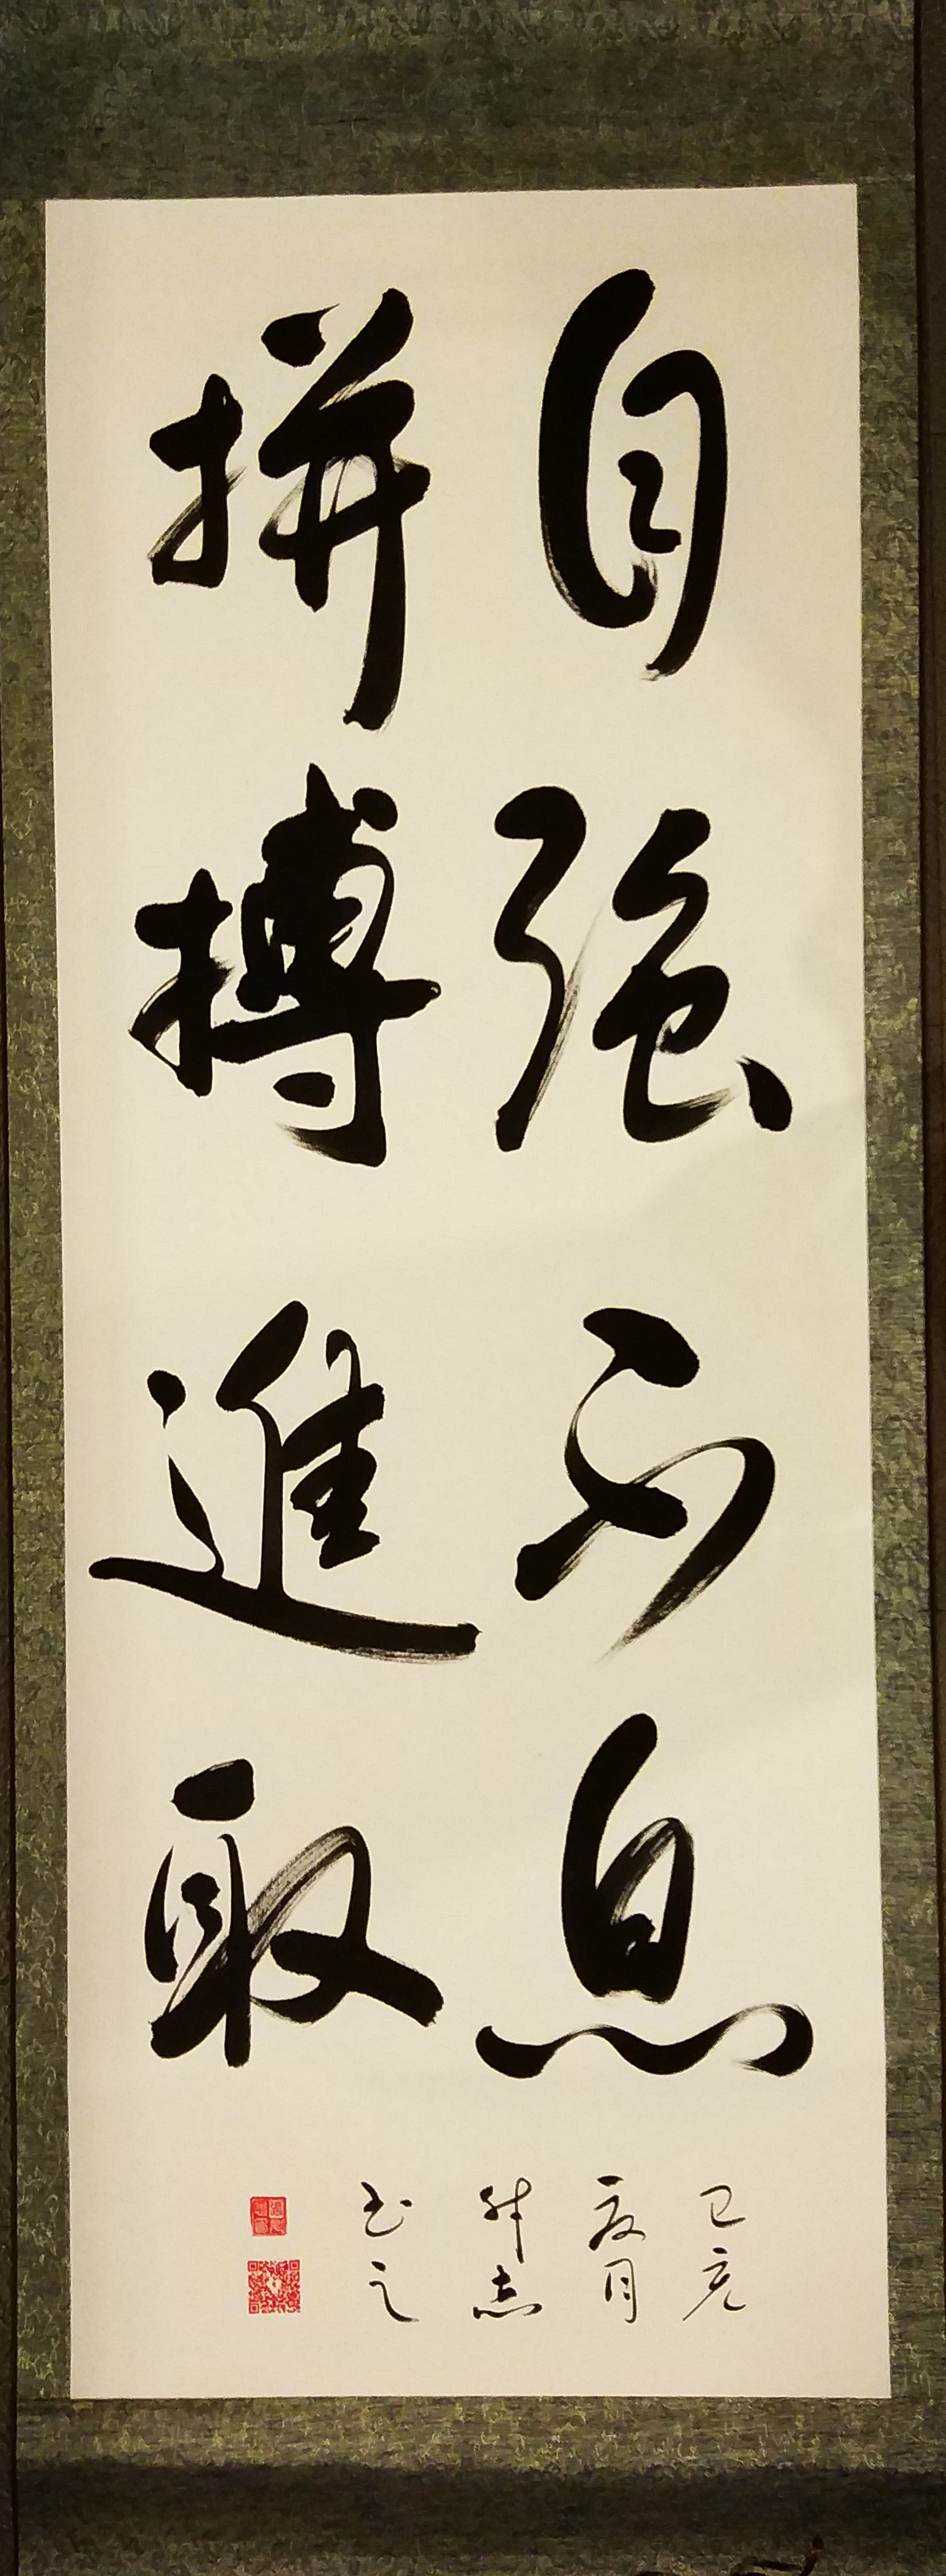 自強不息
拼搏進取
己亥
夏月
書之